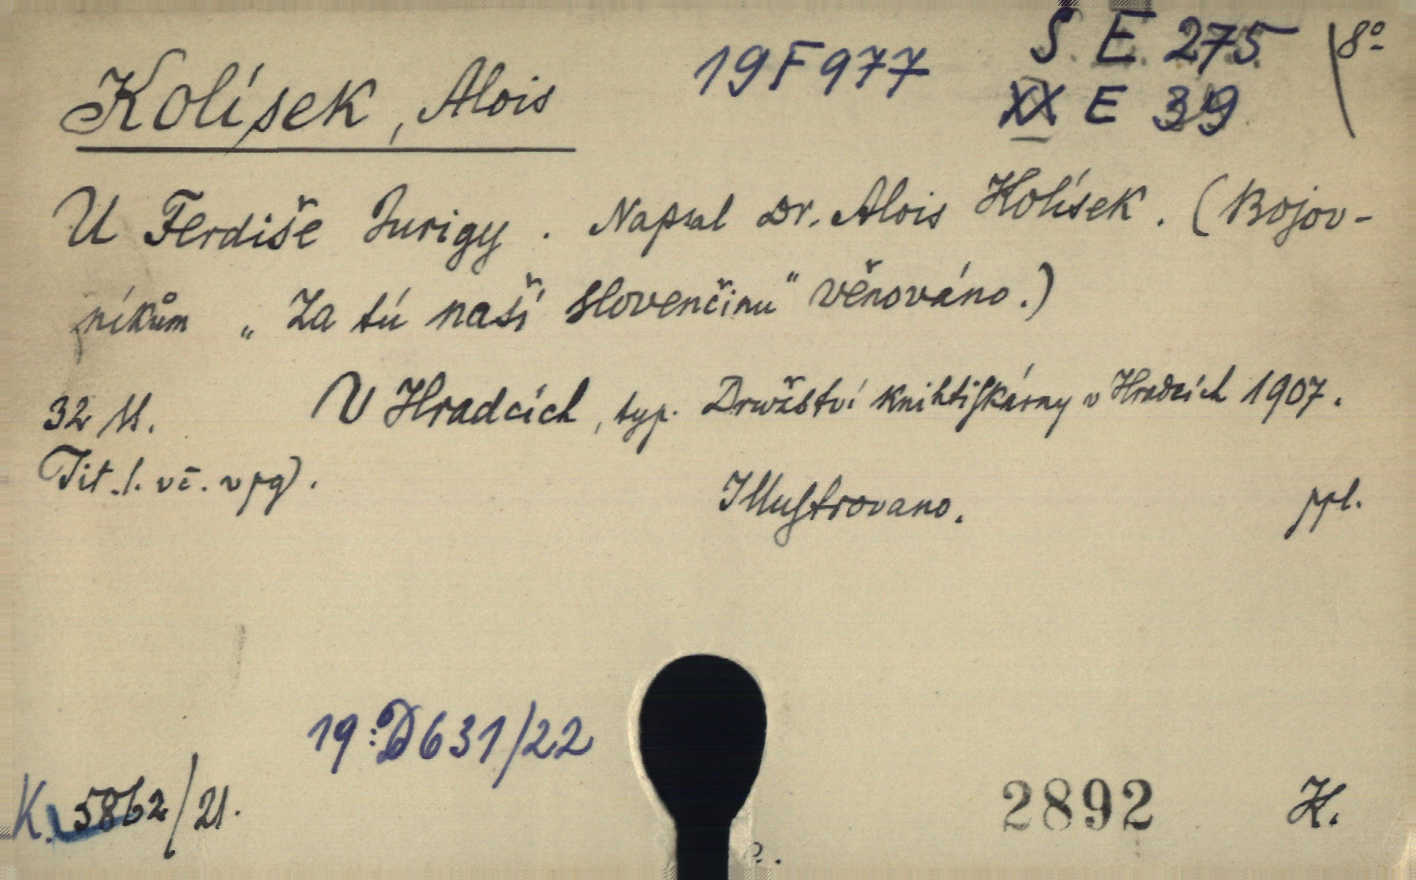 19F977
S E 275
8º
XX E 39
Kolísek, Alois
U Ferdiše Jurigy. Napsal Dr. Alois Kolísek. (Bojov-
níkům „Za tú naší slovenčinu" věnováno.)
32 M. V Hradcích, typ. Družství knihtiskárny v Hradcích 1907.
Tit. l. vč. v pg).
Illustrovano. ppl.
19:D631/22
K. 5862/21.
2892 K.